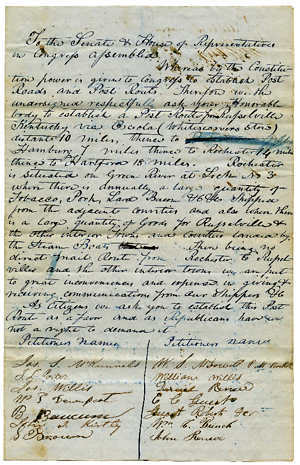 To the Senate & House of Representatives
in Congress Assembled
Whereas by the Constitu-
tion power is given to Congress to Establish Post
Roads, and Post Routs, Therefore we the
undersigned respectfully ask your Honorable
body to establish a Post Rout from Russelville
Kentucky via
distant 10 miles, thence
Hamburg miles thence to Rochester 14 miles
thence to Hartford 15 miles. Rochester
is situated on Green River at Lock No 3
where thir is annually a large quantity of
Tobacco, Pork, Lard Bacon &c &c Shipped
from the adjacent counties and also when there
is a large quantity of Goods for Russelville &
the other interior towns and Counties landed by
the Steam Boats There being no
direct mail Rout from Rochester to Russel-
ville and the other interior towns we are put
to great inconveniences and expense in giving &
receiving communications from our Shippers &c
As Citizens we ask you to establish this Post
Rout as a favor and as Republicans have we
not a right to demand it
Petitioners names Petitioners names
Jas. William Willis
Jas. Willis Daniel
W S Davenport E C
B Wm C.
S Brown John